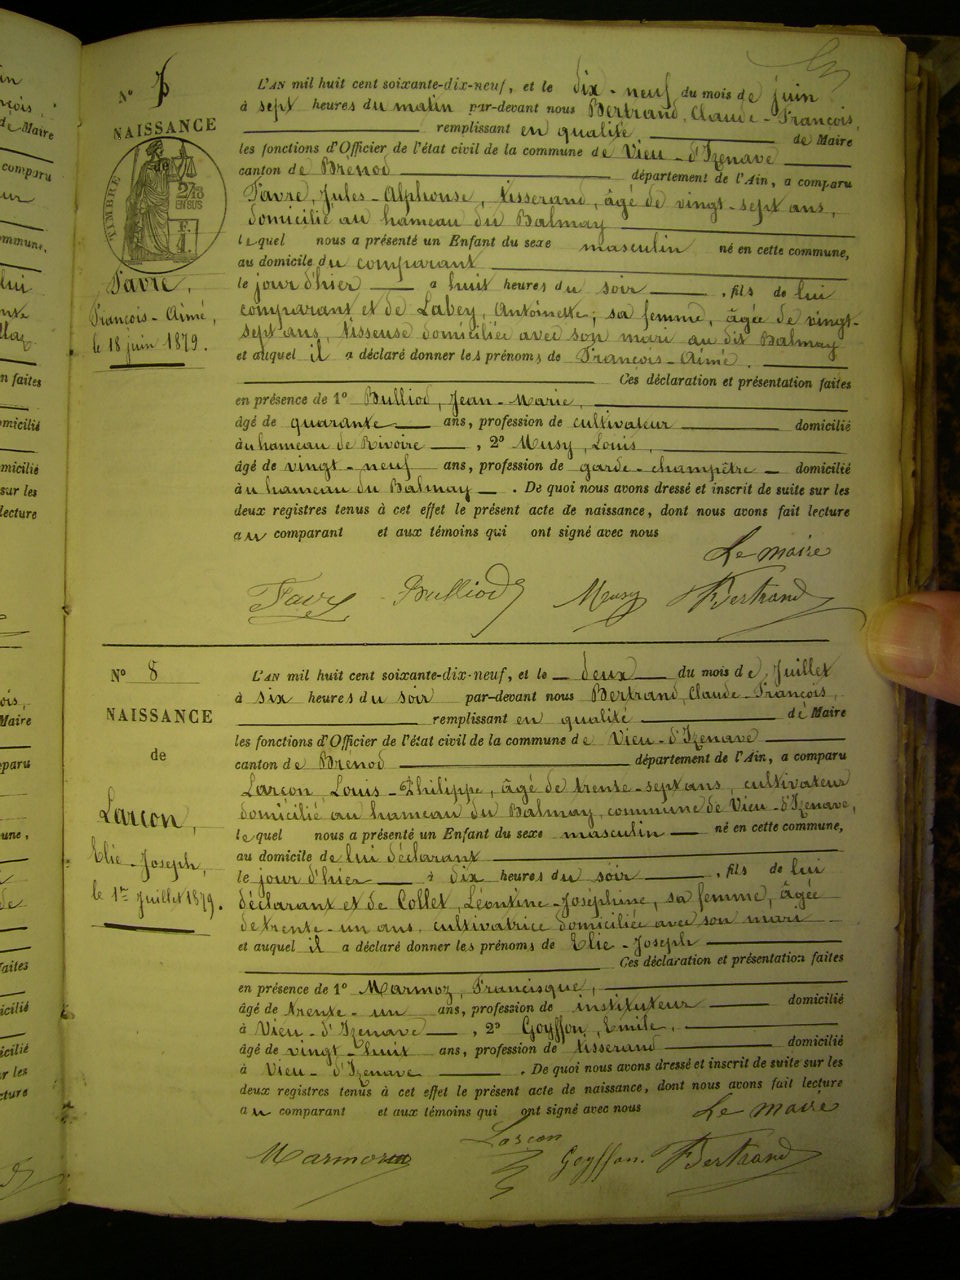 Nº 7
NAISSANCE
TIMBRE
2/10 EN SUS
F. 1
Favre,
François-Aimé,
le 18 juin 1879.
L'AN mil huit cent soixante-dix-neuf, et le dix-neuf du mois de juin
à sept heures du matin par-devant nous Bertrand, Claude-François
remplissant en qualité de Maire
les fonctions d'Officier de l'état civil de la commune de Vieu-d'Izenave
canton de Brénod département de l'Ain, a comparu
Favre, Jules-Alphonse, tisserand, âgé de vingt-sept ans,
domicilié au hameau du Balmay
lequel nous a présenté un Enfant du sexe masculin né en cette commune,
au domicile du comparant
le jour d'hier à huit heures du soir, fils de lui
comparant et de Labey, Antoinette, sa femme, âgée de vingt-
sept ans, tisseuse domiciliée avec son mari au dit Balmay
et auquel il a déclaré donner les prénoms de François-Aimé.
Ces déclaration et présentation faites
en présence de 1º Bulliod, Jean-Marie,
âgé de quarante ans, profession de cultivateur domicilié
au hameau de Rivoire, 2º Musy, Louis,
âgé de vingt-neuf ans, profession de garde-champêtre domicilié
au hameau du Balmay. De quoi nous avons dressé et inscrit de suite sur les
deux registres tenus à cet effet le présent acte de naissance, dont nous avons fait lecture
au comparant et aux témoins qui ont signé avec nous
Le maire
Favre Bulliod Musy Bertrand
Nº 8
NAISSANCE
de
Larcon,
Elie-Joseph,
le 1er Juillet 1879.
L'AN mil huit cent soixante-dix-neuf, et le deux du mois de Juillet
à six heures du soir par-devant nous Bertrand, Claude-François,
remplissant en qualité de Maire
les fonctions d'Officier de l'état civil de la commune de Vieu-d'Izenave
canton de Brénod département de l'Ain, a comparu
Larcon, Louis-Philippe, âgé de trente-sept ans, cultivateur
domicilié au hameau du Balmay, commune de Vieu-d'Izenave,
lequel nous a présenté un Enfant du sexe masculin né en cette commune,
au domicile de lui déclarant
le jour d'hier à dix heures du soir, fils de lui
déclarant et de Collet, Léontine-Joséphine, sa femme, âgée
de trente-un ans, cultivatrice domiciliée avec son mari
et auquel il a déclaré donner les prénoms de Elie-Joseph
Ces déclaration et présentation faites
en présence de 1º Marmoz, Francisque,
âgé de trente-un ans, profession de instituteur domicilié
à Vieu-d'Izenave, 2º Goyffon, Emile,
âgé de vingt-huit ans, profession de tisserand domicilié
à Vieu-d'Izenave. De quoi nous avons dressé et inscrit de suite sur les
deux registres tenus à cet effet le présent acte de naissance, dont nous avons fait lecture
au comparant et aux témoins qui ont signé avec nous
Le maire
Marmoz Larcon Goyffon. Bertrand